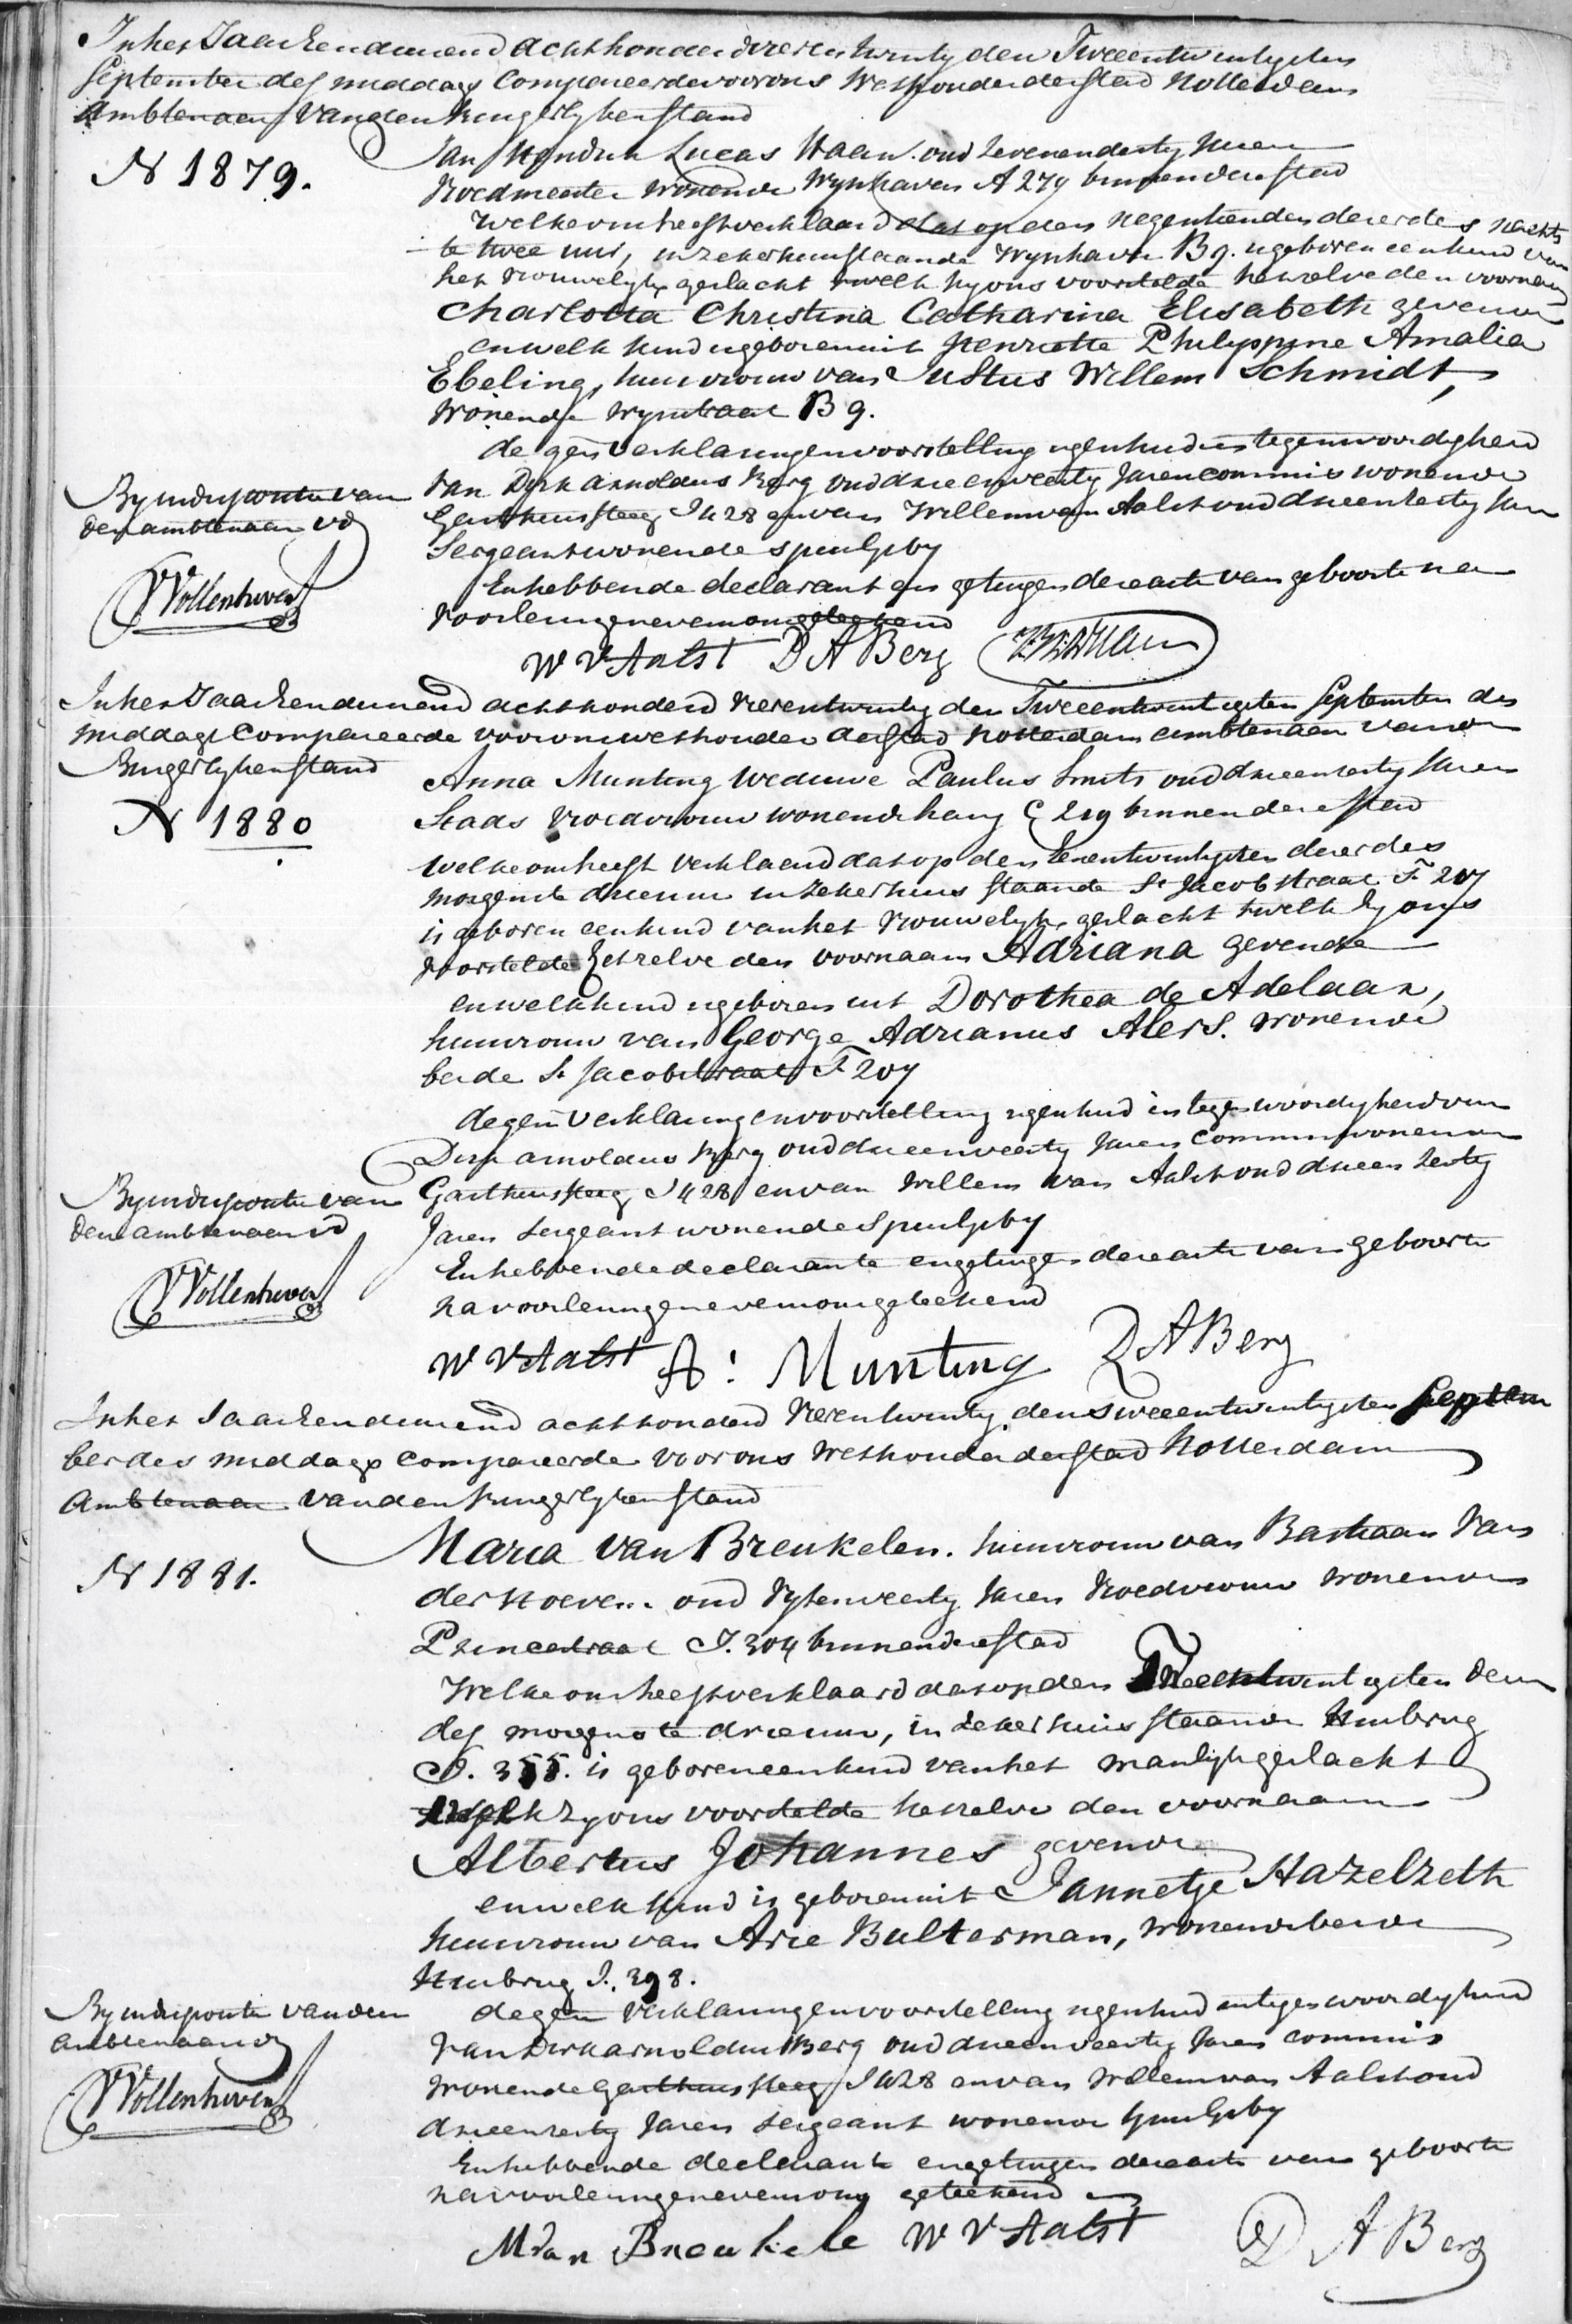 In het Jaar Een duizend acht honderd vier en twintig den Twee en twintigsten
September des middags Compareerde voor ons Wethouder der stad Rotterdam
Ambtenaar van den Burgerlyken stand
N 1879.
Jan Hendrik Lucas Haan oud zeven en dertig Jaren
Vroedmeester wonende Wynhaven A 279 binnen deze stad
welke ons heeft verklaard dat op den negentienden dezer des nachts
te twee uur, in zeker huis staande Wynhaven B 9. is geboren een kind van
het vrouwelyk geslacht twelk hy ons voorstelde hetzelve den voornaam
Charlotta Christina Catharina Elisabeth gevende
en welk kind is geboren uit Henriette Philippine Amalia
Ebeling, huisvrouw van Justus Willem Schmidt,
wonende Wynstraat B 9.
de gem verklaring en voorstelling is geschied in tegenwoordigheid
van Dirk Arnoldus Berg oud drie en veertig Jaren commis wonende
Gasthuissteeg I 428 en van Willem van Aalst oud drie en zestig Jaren
Sergeant wonende Spuipoort
En hebbende declarant en getuigen deze acte van geboorte na
voorlezing nevens ons geteekend
By indispositie van
den ambtenaar vd
V Vollenhoven
W V Aalst D A Berg J H L Haan
In het Jaar Een duizend acht honderd vier en twintig den Twee en twintigsten September des
middags Compareerde voor ons wethouder der stad Rotterdam ambtenaar van den
Burgerlyken stand
N 1880
Anna Munting weduwe Paulus Smits oud drie en zestig Jaren
Stads vroedvrouw wonende hang C 219 binnen deze stad
welke ons heeft verklaard dat op den Een en twintigsten dezer des
morgens te drie uur in zeker huis staande St Jacobstraat F 207
is geboren een kind van het vrouwelyk geslacht twelk zy ons
voorstelde hetzelve den voornaam Adriana gevende
en welk kind is geboren uit Dorothea de Adelaar,
huisvrouw van George Adrianus Alers. wonende
beide St Jacobstraat F 207
de gem verklaring en voorstelling is geschied in tegenwoordigheid van
Dirk Arnoldus Berg oud drie en veertig Jaren Commis wonende
Gasthuissteeg I 428 en van Willem van Aalst oud drie en zestig
Jaren Sergeant wonende Spuipoort
En hebbende declarante en getuigen deze acte van geboorte
na voorlezing nevens ons geteekend
By indispositie van
den ambtenaar vd
V Vollenhoven
W V Aalst A: Munting D A Berg
In het Jaar Een duizend acht honderd vier en twintig den Twee en twintigsten Septem
ber des middags compareerde voor ons Wethouder der stad Rotterdam
Ambtenaar van den Burgerlyken stand
N 1881.
Maria van Breukelen. huisvrouw van Bastiaan van
der Hoeven. oud vyf en veertig Jaren Vroedvrouw wonende
Princestraat I. 304 binnen deze stad
Welke ons heeft verklaard dat op den Twee en twintigsten dezer
des morgens te drie uur, in zeker huis staande Hmbrug
I. 355. is geboren een kind van het manlyk geslacht
twelk zy ons voorstelde hetzelve den voornaam
Albertus Johannes gevende
en welk kind is geboren uit Jannetje Hazelzeth
huisvrouw van Arie Bulterman, wonende beide
Hmbrug I. 398.
de gem verklaring en voorstelling is geschied in tegenwoordigheid
van Dirk Arnoldus Berg oud drie en veertig Jaren commis
wonende Gasthuissteeg I 428 en van Willem van Aalst oud
drie en zestig Jaren Sergeant wonende Spuipoort
En hebbende declarante en getuigen deze acte van geboorte
na voorlezing nevens ons geteekend
By indispositie van den
ambtenaar vd
V Vollenhoven
M van Breukele W V Aalst D A Berg